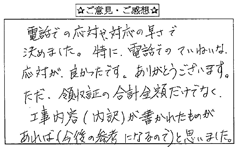 ☆ご意見・ご感想☆
電話での応対や対応の早さで
決めました。特に、電話でのていねいな
応対が、良かったです。ありがとうございます。
ただ、領収証の合計金額だけでなく、
工事内容(内訳)が書かれたものが
あれば(今後の参考になるので)と思いました。